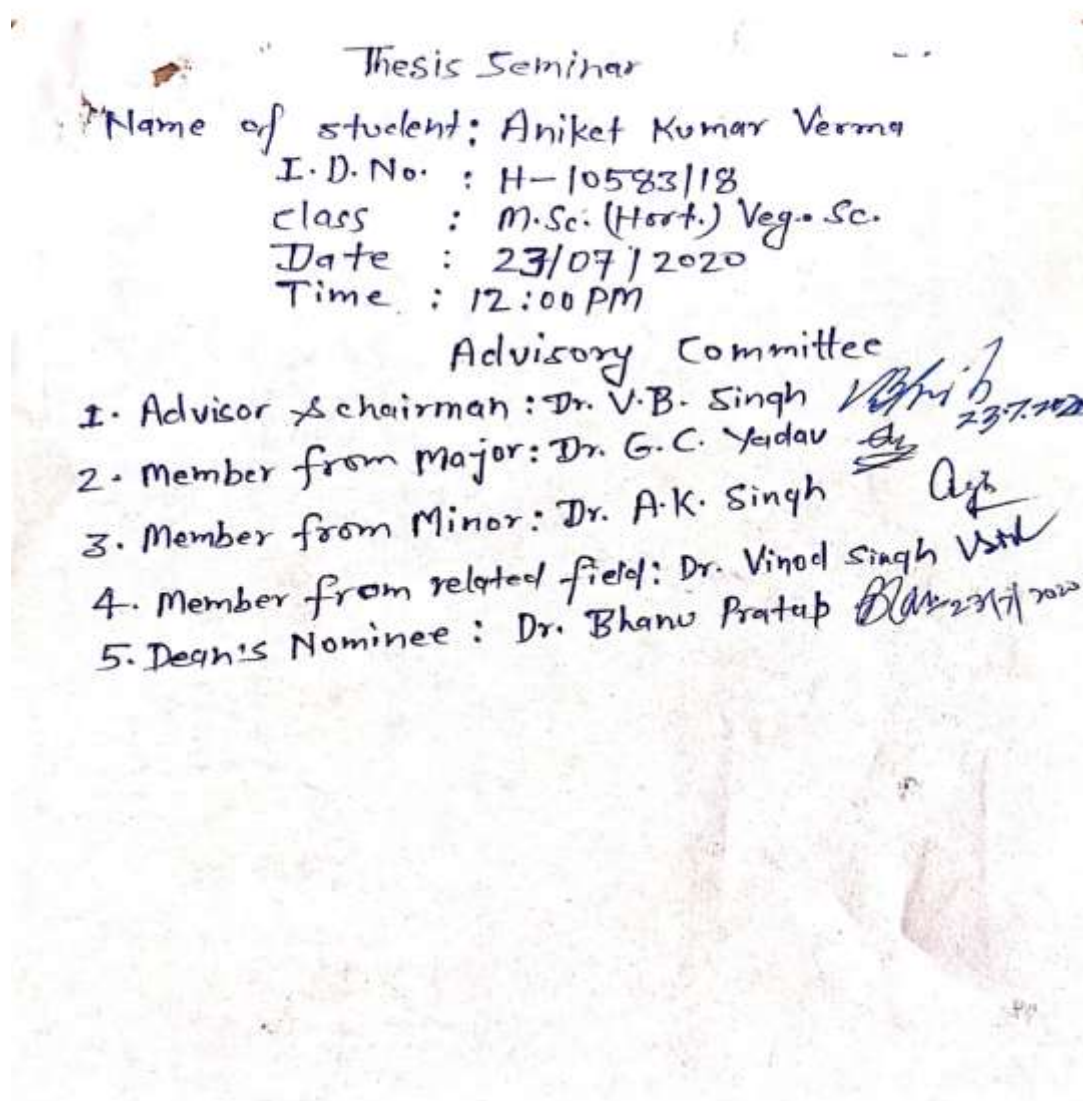 Thesis Seminar
Name of student: Aniket Kumar Verma
I.D. No. : H-10583/18
class : M.Sc. (Hort.) Veg. Sc.
Date : 23/07/2020
Time : 12:00 PM
Advisory Committee
1. Advisor & chairman : Dr. V.B. Singh 23.7.2020
2. Member from Major: Dr. G.C. Yadav
3. Member from Minor: Dr. A.K. Singh
4. Member from related field: Dr. Vinod Singh
5. Dean's Nominee : Dr. Bhanu Pratap 23/7/2020